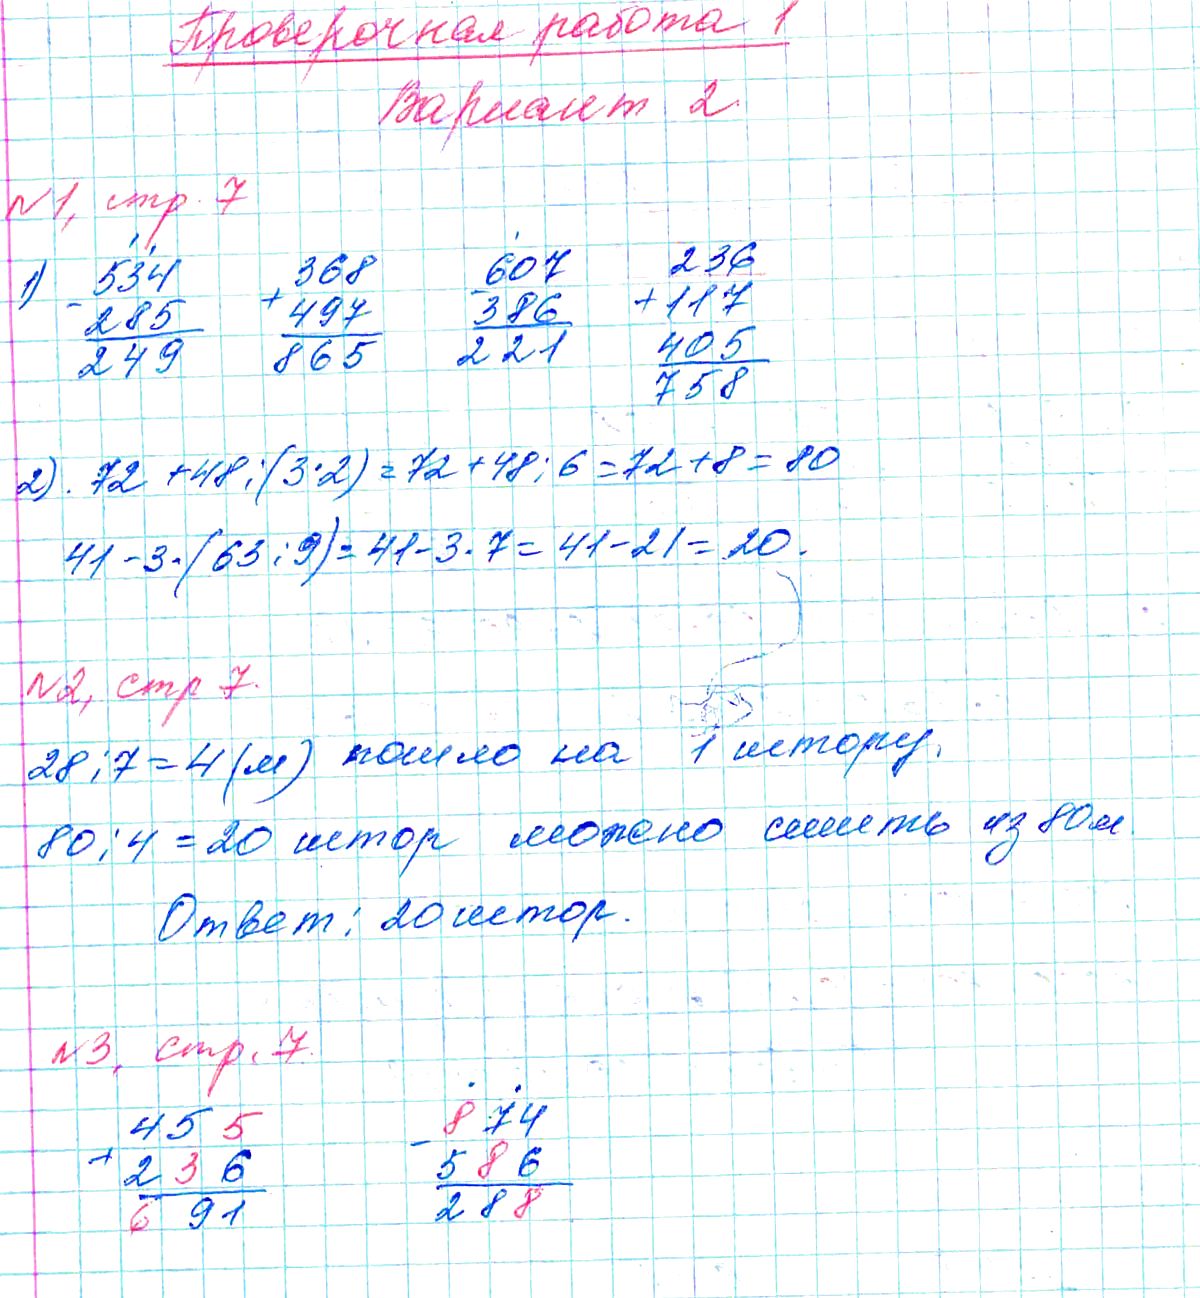 Проверочная работа 1
Вариант 2.
№1, стр. 7
1) 534 - 285 249
368 + 497 865
607 - 386 221
236 + 117 405 758
2). 72 + 48 : (3·2) = 72 + 48 : 6 = 72 + 8 = 80
41 - 3·(63 : 9) = 41 - 3·7 = 41 - 21 = 20.
№2, стр 7.
28 : 7 = 4 (м) пошло на 1 штору.
80 : 4 = 20 штор можно сшить из 80 м.
Ответ: 20 штор.
№3, стр. 7.
455 + 236 691
874 - 586 288